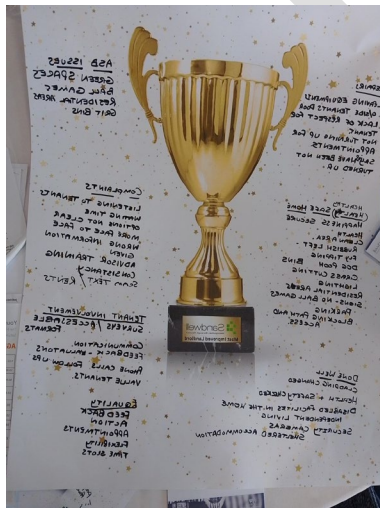 ASB ISSUES
GREEN SPACES
BALL GAMES
RESIDENTIAL AREAS
GRIT BINS
COMPLAINTS
LISTENING TO TENANTS
WAITING TIME
OPTIONS NOT CLEAR
MORE FACE TO FACE
WRONG INFORMATION
GIVEN
ADVISOR TRAINING
CONSISTANCY
TEXT RENTS
TENANT INVOLVEMENT
SURVEYS / ACCESSIBLE
FORMATS
COMMUNICATION
FEEDBACK NEWSLETTERS
PHONE CALLS FOLLOW UPS
VALUE TENANTS
EQUALITY
FEED BACK
ACTION
APPOINTMENTS
FLEXIBILITY
TIME SLOTS
Sandwell
Most Improved Landlord
REPAIRS
EQUIPMENT
TENANTS FOR
LACK OF RESPECT FOR
TENANT
NOT TURNING UP FOR
APPOINTMENTS
BEEN NOT
TURNED UP
HEALTH
(HEALTHY) SAFE HOME
HAPPINESS SECURE
HEALTH
CLEAN AREA
RUBBISH LEFT
FLY TIPPING
DOG POOH BINS
GRASS CUTTING
LIGHTING
RESIDENTIAL AREAS
SIGNS - NO BALL GAMES
PARKING
BLOCKING PATH AND
ACCESS
DONE WELL
CLADDING CHANGED
HEALTH + SAFETY CHECKED
DISABLED FACILITIES IN THE HOME
INDEPENDENT LIVING
SECURITY CAMERAS
SHELTERED ACCOMMODATION